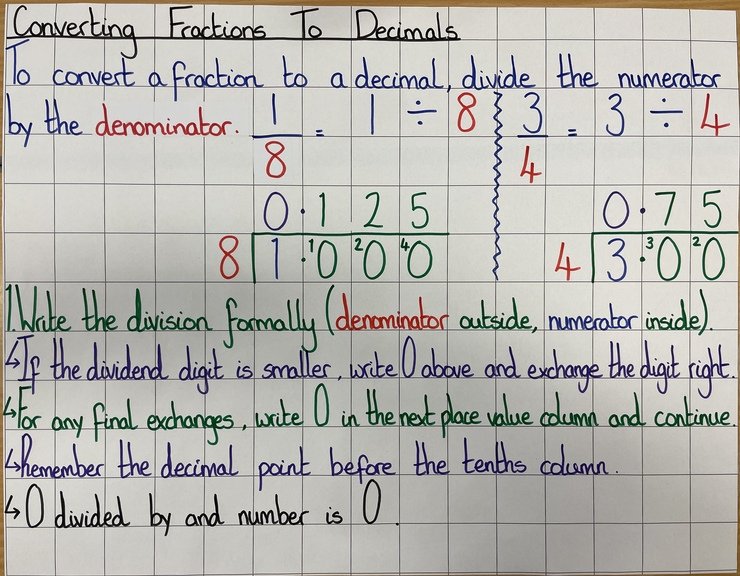 Converting Fractions To Decimals
To convert a fraction to a decimal, divide the numerator
by the denominator. 1/8 = 1 ÷ 8 3/4 = 3 ÷ 4
0.125 0.75
8 1.¹0²0⁴0 4 3.³0²0
1. Write the division formally (denominator outside, numerator inside).
↳ If the dividend digit is smaller, write 0 above and exchange the digit right.
↳ For any final exchanges, write 0 in the next place value column and continue.
↳ Remember the decimal point before the tenths column.
↳ 0 divided by and number is 0.